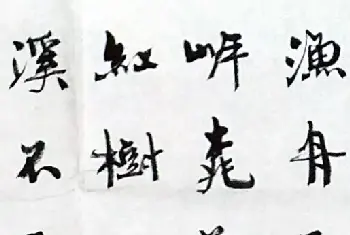 漁舟
岸桃
紅樹
溪不